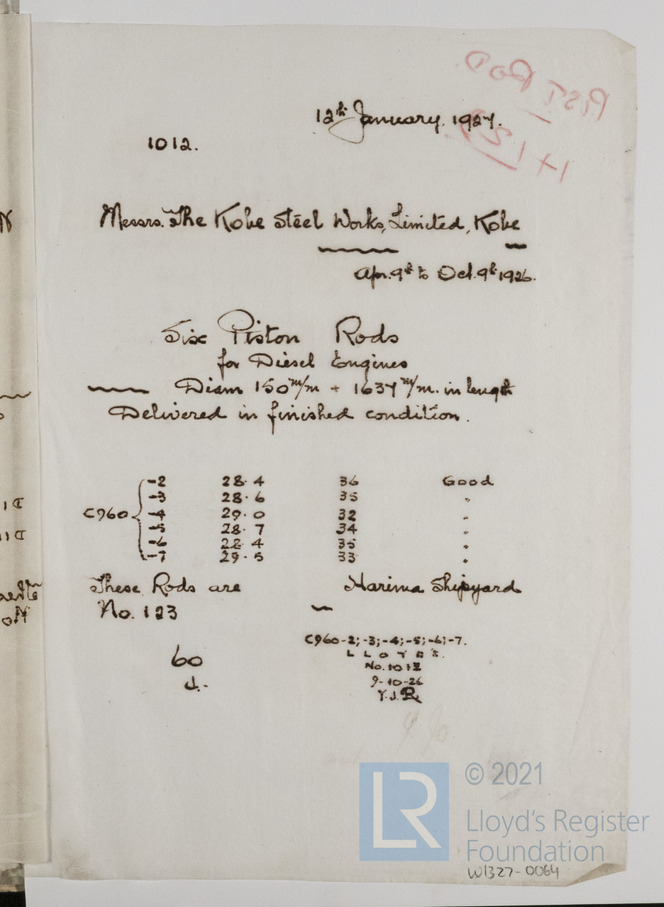 PIST ROD
H 123
12th January. 1927.
1012.
Messrs. The Kobe Steel Works, Limited, Kobe
Apr. 9th to Oct. 9th 1926.
Six Piston Rods
for Diesel Engines
Diam 150 m/m + 1637 m/m. in length
Delivered in finished condition.
-2 28.4 36 Good
-3 28.6 35 "
C960 { -4 29.0 32 "
-5 28.7 34 "
-6 28.4 35 "
-7 29.5 33 "
These Rods are Harima Shipyard
No. 123
C960-2; -3; -4; -5; -6; -7.
60 LLOYD'S.
No. 1012
9-10-26
Y.J.R
© 2021
LR
Lloyd's Register
Foundation
W1327-0064